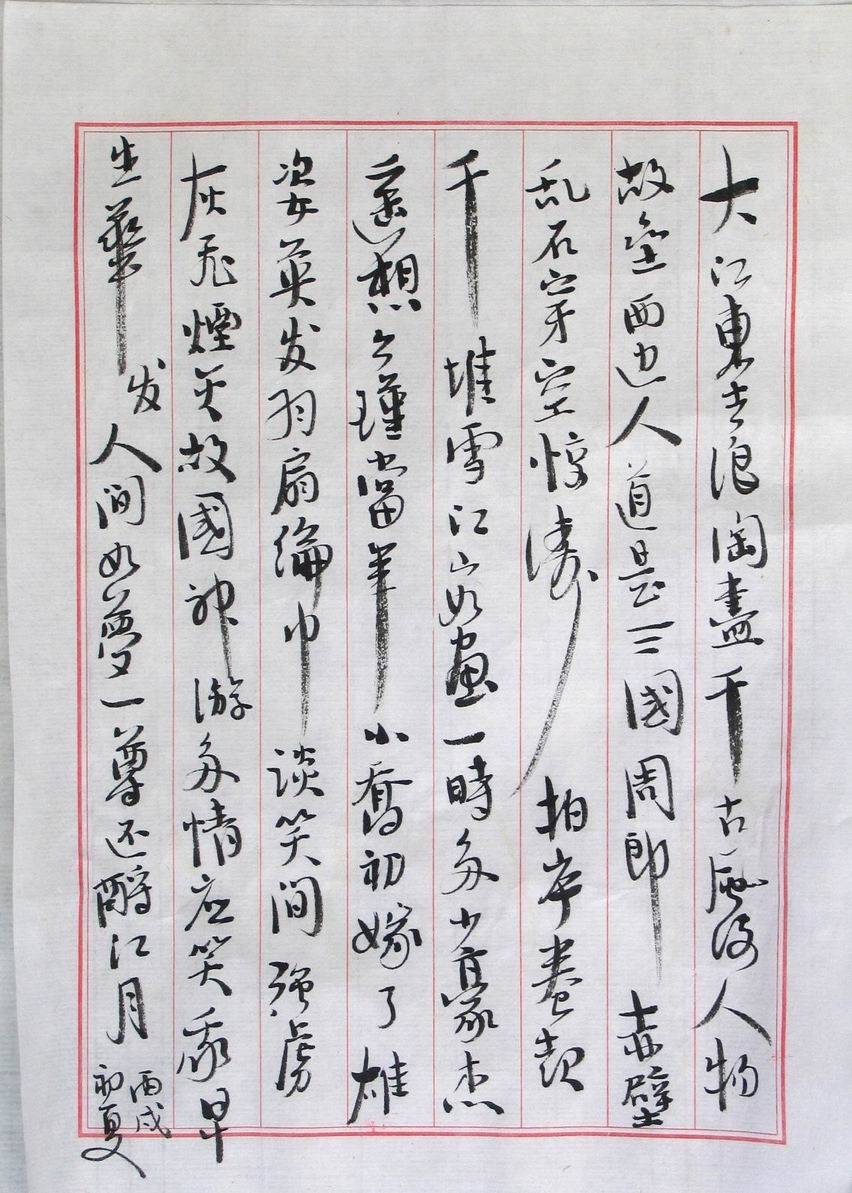 大江東去浪淘盡千古風流人物
故垒西边人道是三國周郎赤壁
乱石穿空惊涛拍岸卷起
千堆雪江山如畫一時多少豪杰
遥想公瑾當年小喬初嫁了雄
姿英发羽扇綸巾談笑间强虏
灰飛煙灭故國神游多情应笑我早
生華发人间如夢一尊还酹江月
丙戌
初夏